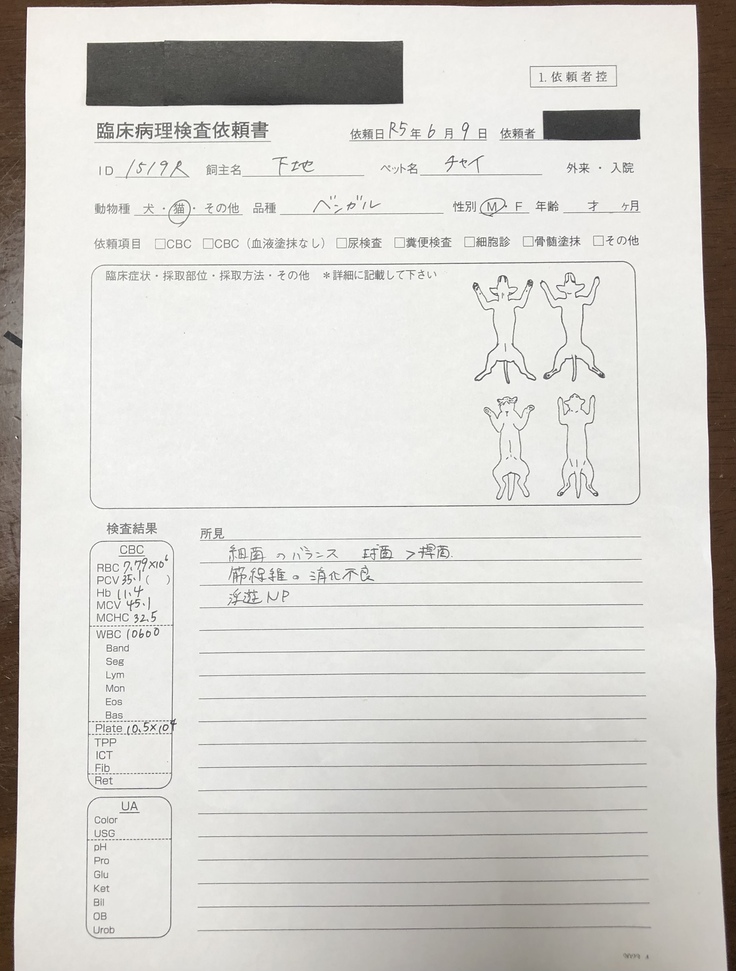 1.依頼者控
臨床病理検査依頼書
依頼日 R5年 6月 9日 依頼者
ID 1519R 飼主名 下地 ペット名 チャイ 外来・入院
動物種 犬・猫・その他 品種 ベンガル 性別 M・F 年齢 才 ヶ月
依頼項目 □CBC □CBC（血液塗抹なし）□尿検査 □糞便検査 □細胞診 □骨髄塗抹 □その他
臨床症状・採取部位・採取方法・その他 ＊詳細に記載して下さい
検査結果
CBC
RBC 7.79×10⁶
PCV 35.1（ ）
Hb 11.4
MCV 45.1
MCHC 32.5
WBC 10600
Band
Seg
Lym
Mon
Eos
Bas
Plate 10.5×10⁴
TPP
ICT
Fib
Ret
UA
Color
USG
pH
Pro
Glu
Ket
Bil
OB
Urob
所見
細菌のバランス 球菌＞桿菌.
筋線維の消化不良
浮遊NP